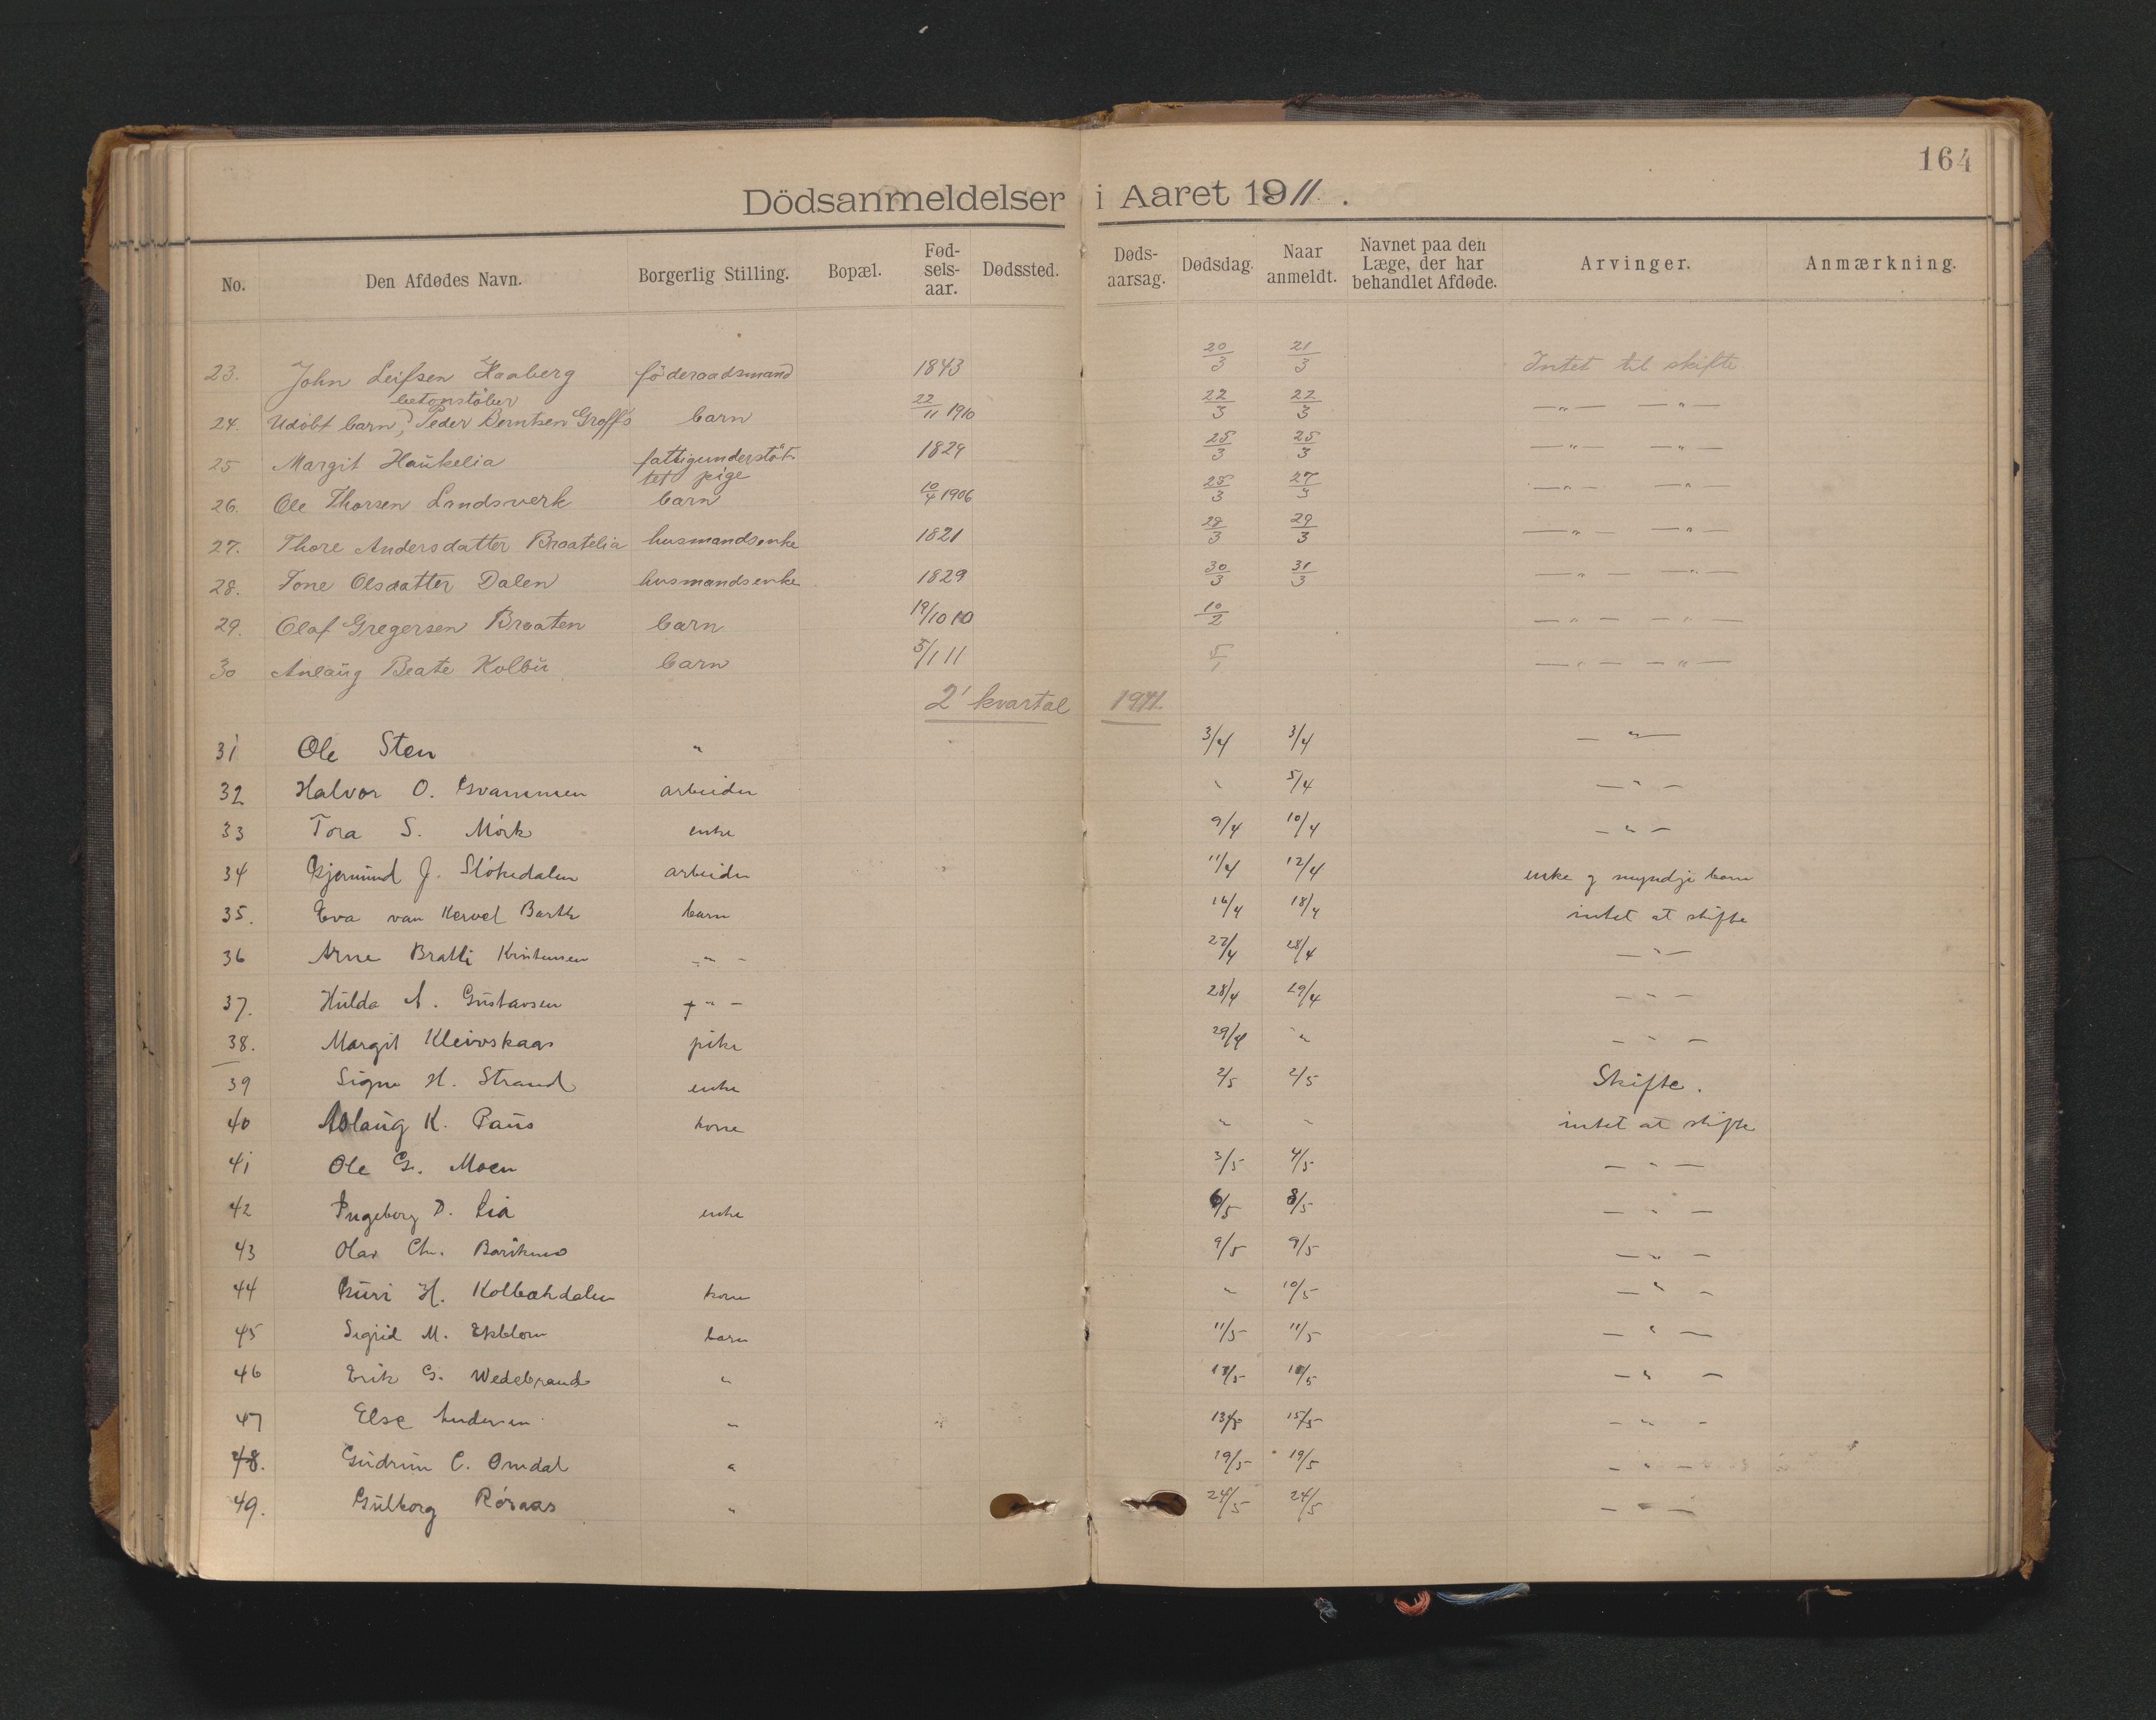 164
Dödsanmeldelser i Aaret 1911.
No. Den Afdødes Navn. Borgerlig Stilling. Bopæl. Fød-sels-aar. Dødssted. Døds-aarsag. Dødsdag. Naar anmeldt. Navnet paa den Læge, der har behandlet Afdøde. Arvinger. Anmærkning.
23. John Leifsen Haaberg föderaadsmand 1843 20/3 21/3 Intet til skifte
betonstöber
24. Udöbt barn, Peder Berntsen Groff's barn 22/11 1910 22/3 22/3 — " — — " —
25 Margit Haukelia fattigunderstöt- 1829 25/3 25/3 — " — — " —
tet pige
26. Ole Thorsen Landsverk barn 10/4 1906 25/3 27/3 — " — — " —
27. Thore Andersdatter Braatelia husmandsenke 1821 28/3 29/3 — " — — " —
28. Tone Olsdatter Dalen husmandsenke 1829 30/3 31/3 — " — — " —
29. Olaf Gregersen Braaten barn 19/10 10 10/2 — " — — " —
30 Anlaug Beate Kolbu barn 5/1 11 5/1 — " — — " —
2' kvartal 1911.
31 Ole Sten " 3/4 3/4 — " —
32 Halvor O. arbeider " 5/4 — " —
33 Tora S. Mörk enke 9/4 10/4 — " —
34 Gjermund J. Slökedalen arbeider 11/4 12/4 enke g myndje barn
35. Eva van Kervel Barth barn 16/4 18/4 intet at skifte
36 Arne Bratli Kristensen — " — 27/4 28/4 — " —
37. Hulda A. Gustavsen — " — 28/4 29/4 — " —
38. Margit Kleivskaas pike 29/4 " — " —
39 Signe H. Strand enke 2/5 2/5 Skifte.
40 Aslaug K. Paus kone " " intet at skifte
41 Ole G. Moen 3/5 4/5 — " —
42 Ingeborg D. Lia enke 6/5 8/5 — " —
43 Olav Chr. 9/5 9/5 — " —
44 Guri H. Kolbækdalen kone " 10/5 — " —
45 Sigrid M. Ekblom barn 11/5 11/5 — " —
46 Erik G. Wedebrand " — " —
47 Else Andersen " 13/5 15/5 — " —
48. Gudrun C. Omdal " 19/5 19/5 — " —
49. Gulborg Röraas " 24/5 24/5 — " —